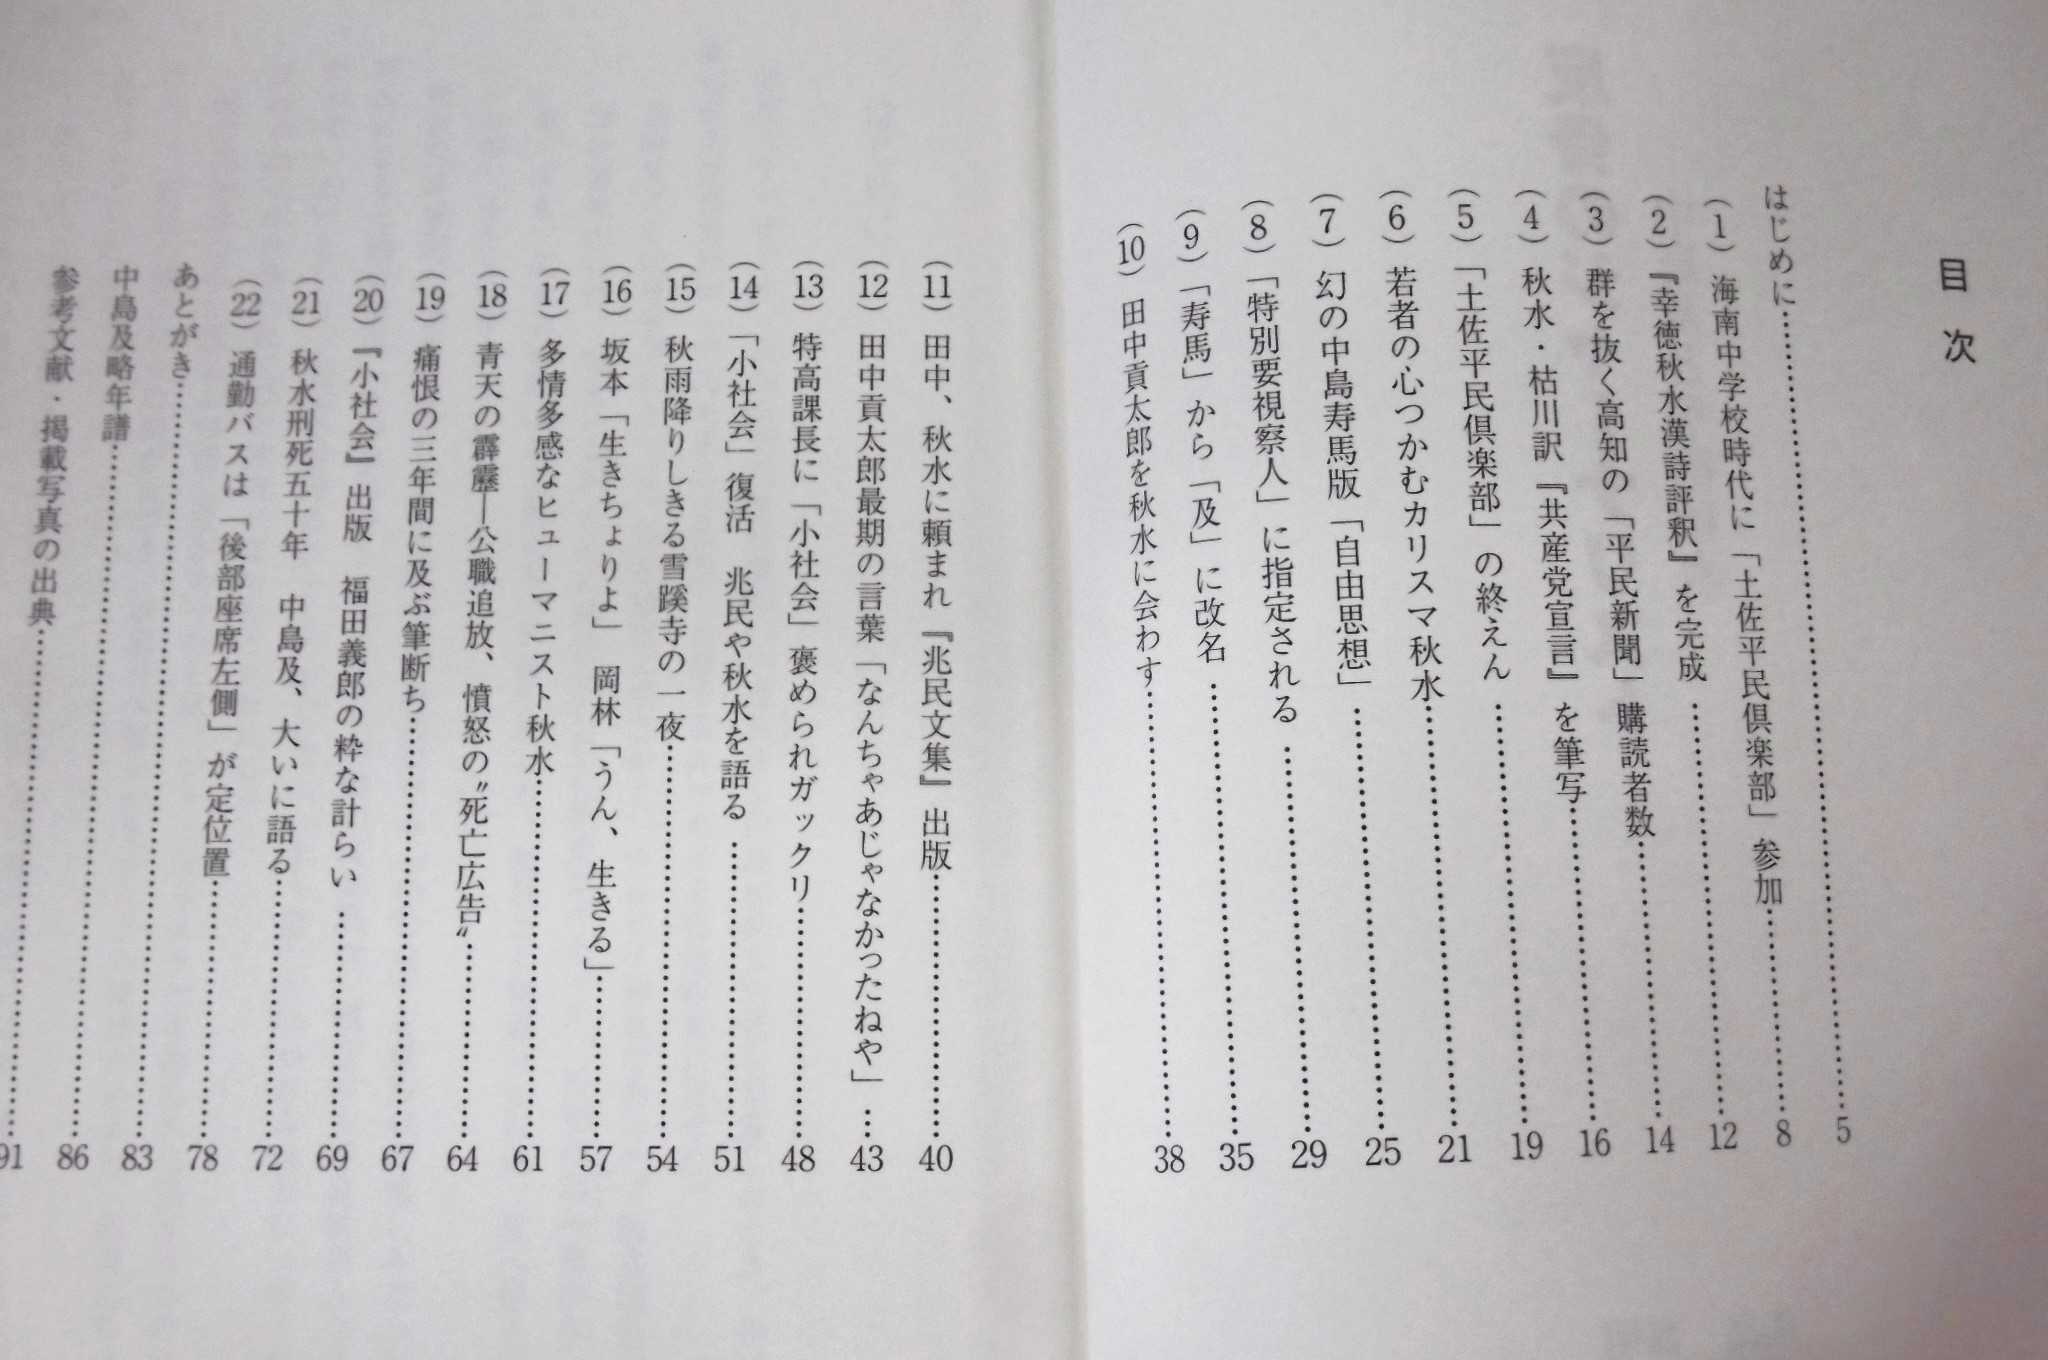 目次
はじめに……5
(1) 海南中学校時代に「土佐平民倶楽部」参加……8
(2)『幸徳秋水漢詩評釈』を完成……12
(3) 群を抜く高知の「平民新聞」購読者数……14
(4) 秋水・枯川訳『共産党宣言』を筆写……16
(5)「土佐平民倶楽部」の終えん……19
(6) 若者の心つかむカリスマ秋水……21
(7) 幻の中島寿馬版「自由思想」……25
(8)「特別要視察人」に指定される……29
(9)「寿馬」から「及」に改名……35
(10) 田中貢太郎を秋水に会わす……38
(11) 田中、秋水に頼まれ『兆民文集』出版……40
(12) 田中貢太郎最期の言葉「なんちゃあじゃなかったねや」…43
(13) 特高課長に「小社会」褒められガックリ……48
(14)「小社会」復活　兆民や秋水を語る……51
(15) 秋雨降りしきる雪蹊寺の一夜……54
(16) 坂本「生きちょりよ」　岡林「うん、生きる」……57
(17) 多情多感なヒューマニスト秋水……61
(18) 青天の霹靂―公職追放、憤怒の〝死亡広告〟……64
(19) 痛恨の三年間に及ぶ筆断ち……67
(20)『小社会』出版　福田義郎の粋な計らい……69
(21) 秋水刑死五十年　中島及、大いに語る……72
(22) 通勤バスは「後部座席左側」が定位置……78
あとがき……83
中島及略年譜……86
参考文献・掲載写真の出典……91